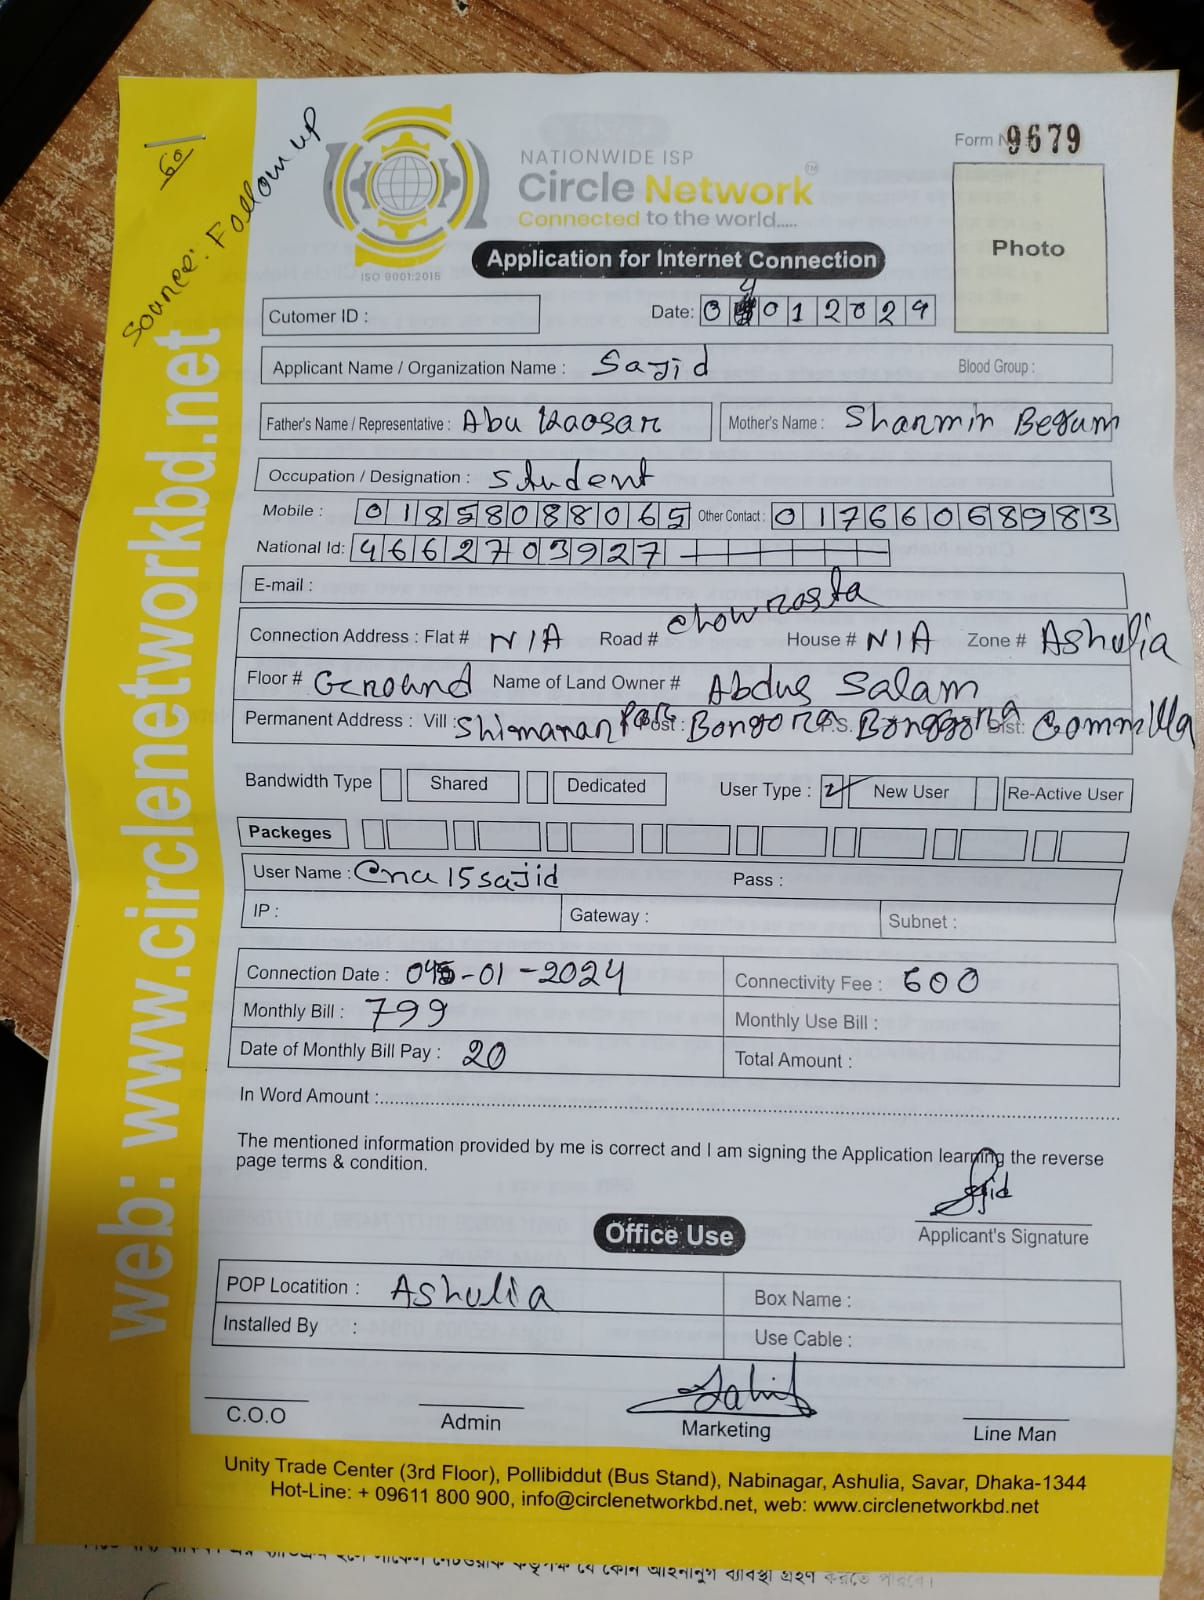 60
Source: Follow up
web: www.circlenetworkbd.net
NATIONWIDE ISP
Circle Network™
Connected to the world.....
ISO 9001:2015
Form N 9679
Photo
Application for Internet Connection
Cutomer ID :
Date: 04012024
Applicant Name / Organization Name : Sajid Blood Group :
Father's Name / Representative : Abu Kaosar Mother's Name : Sharmin Begum
Occupation / Designation : Student
Mobile : 01858088065 Other Contact : 01766068983
National Id: 4662703927
E-mail :
Connection Address : Flat # N/A Road # chowrasta House # N/A Zone # Ashulia
Floor # Ground Name of Land Owner # Abdus Salam
Permanent Address : Vill : Shimanar Par Post : Bongora P.S. Bonggora Dist: Commilla
Bandwidth Type Shared Dedicated User Type : New User Re-Active User
Packeges
User Name : Cna15sajid Pass :
IP : Gateway : Subnet :
Connection Date : 04-01-2024 Connectivity Fee : 600
Monthly Bill : 799 Monthly Use Bill :
Date of Monthly Bill Pay : 20 Total Amount :
In Word Amount :
The mentioned information provided by me is correct and I am signing the Application learning the reverse
page terms & condition.
Sajid
Applicant's Signature
Office Use
POP Locatition : Ashulia Box Name :
Installed By : Use Cable :
C.O.O Admin Marketing Line Man
Unity Trade Center (3rd Floor), Pollibiddut (Bus Stand), Nabinagar, Ashulia, Savar, Dhaka-1344
Hot-Line: + 09611 800 900, info@circlenetworkbd.net, web: www.circlenetworkbd.net
কর্তৃপক্ষ যে কোন আইনানুগ ব্যাবস্থা গ্রহণ করতে পারবে।